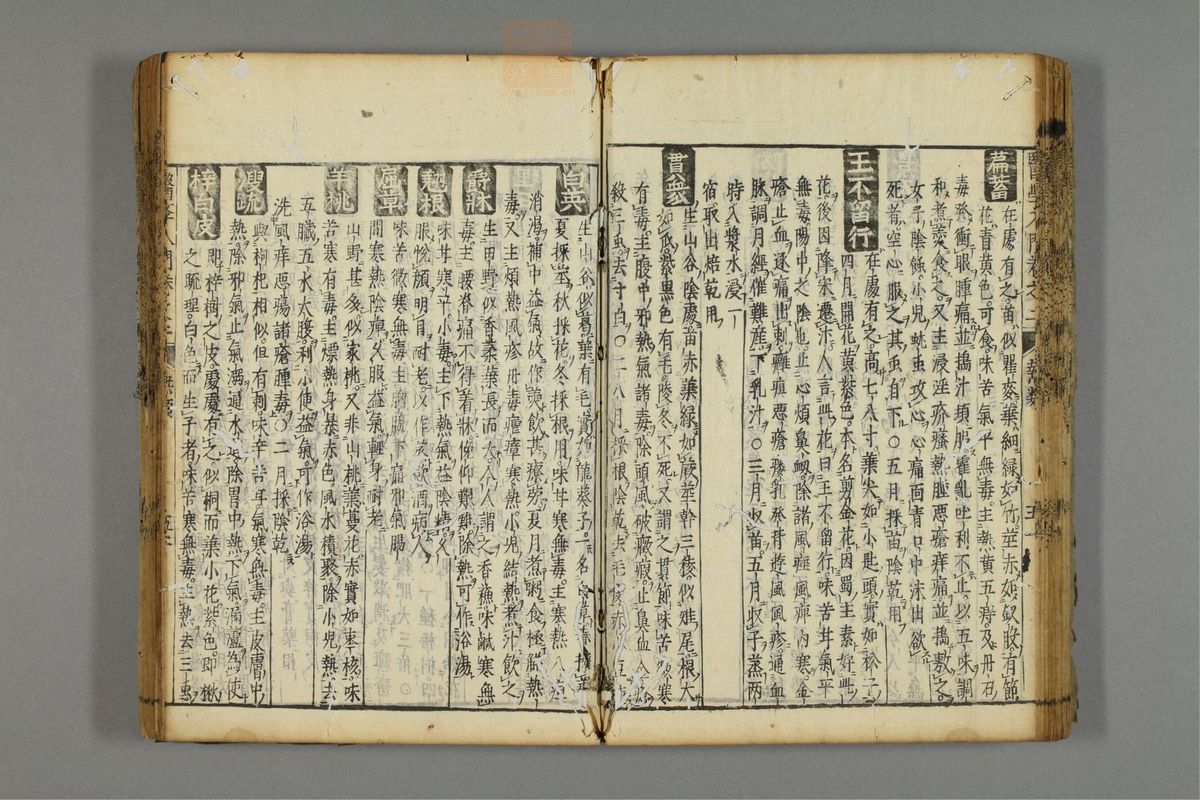 萹蓄
在處有之苗似瞿麥葉細綠如竹莖赤如釵股有節
花青黃色可食味苦氣平無毒主熱黃五痔及丹石
毒發衝眼腫痛並搗汁頓服霍亂吐利不止以五味調
和煮羹食之又主浸淫疥瘙熱腫惡瘡痒痛並搗敷之
女子陰蝕小兒蚘虫攻心心痛面青口中沫出欲
死煮空心服之其虫自下〇五月採苗陰乾用
王不留行
在處有之高七八寸葉尖如小匙頭實如松子
四月開花黃紫色本名剪金花因蜀主素好此
花後因降宋遷汴人言此花曰王不留行味苦甘氣平
無毒陽中之陰也止心煩鼻衂除諸風癰風痺內寒金
瘡止血逐痛出刺癰疽惡瘡瘻乳發背遊風風疹通血
脉調月經催難產下乳汁〇三月收苗五月收子蒸兩
時入漿水浸一
宿取出焙乾用
貫衆
生山谷陰處苗赤葉綠如嚴莖幹三稜似雉尾根大
如瓜紫黑色有毛陵冬不死又謂之貫節味苦微寒
有毒主腹中邪熱氣諸毒除頭風破癥瘕止鼻血金瘡
殺三虫去寸白〇二八月採根陰乾去毛
白英
生山谷似葛葉有毛實如龍葵子一名
夏採莖秋採花冬採根用味甘寒無毒主寒熱八疸
消渴補中益氣故作羹飲甚療勞夏月煮粥食極解熱
毒又主煩熱風疹丹毒癉瘧寒熱小兒結熱煮汁飲之
爵牀
生田野似香葇葉長而大今人謂之香蘇味鹹寒無
毒主腰脊痛不得着牀俛仰艱難除熱可作浴湯
䕮根
味甘寒平小毒主下熱氣益陰精久
服悅顏明目耐老以作蒸飲酒病人
屈草
味苦微寒無毒主胸脇下痛邪氣腸
間寒熱陰痺久服益氣輕身耐老
羊桃
山野甚多似家桃又非山桃葉蔓花赤實如棗核味
苦寒有毒主熛熱身暴赤色風水積聚除小兒熱去
五臟五水大腹利小便益氣可作浴湯
洗風痒惡瘍諸瘡腫毒〇二月採陰乾
溲疏
與枸杞相似但有刺味辛苦平氣寒無毒主皮膚中
熱除邪氣止氣溺通水道除胃中熱下氣漏虛爲使
梓白皮
即梓樹之皮處處有之似桐而葉小花紫色即楸
之疏理白色而生子者味苦寒無毒主熱去三虫